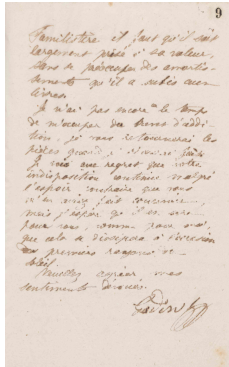 9
Familistère et faut qu'il soit
largement prisé à sa valeur,
sans se préoccuper des amortis-
sements qu'il a subis aux
livres.
Je n'ai pas encore le temps
de m'occuper du brevet d'addi-
tion, je vous retournerai les
pièces quand je
Je vois avec regret que votre
indisposition continue malgré
l'espoir contraire que vous
m'en aviez fait concevoir,
mais j'espère qu'il en sera
pour vous comme pour moi
que cela se dissipera à
premiers rayons de
soleil.
Veuillez agréer mes
sentiments dévoués.
Godin